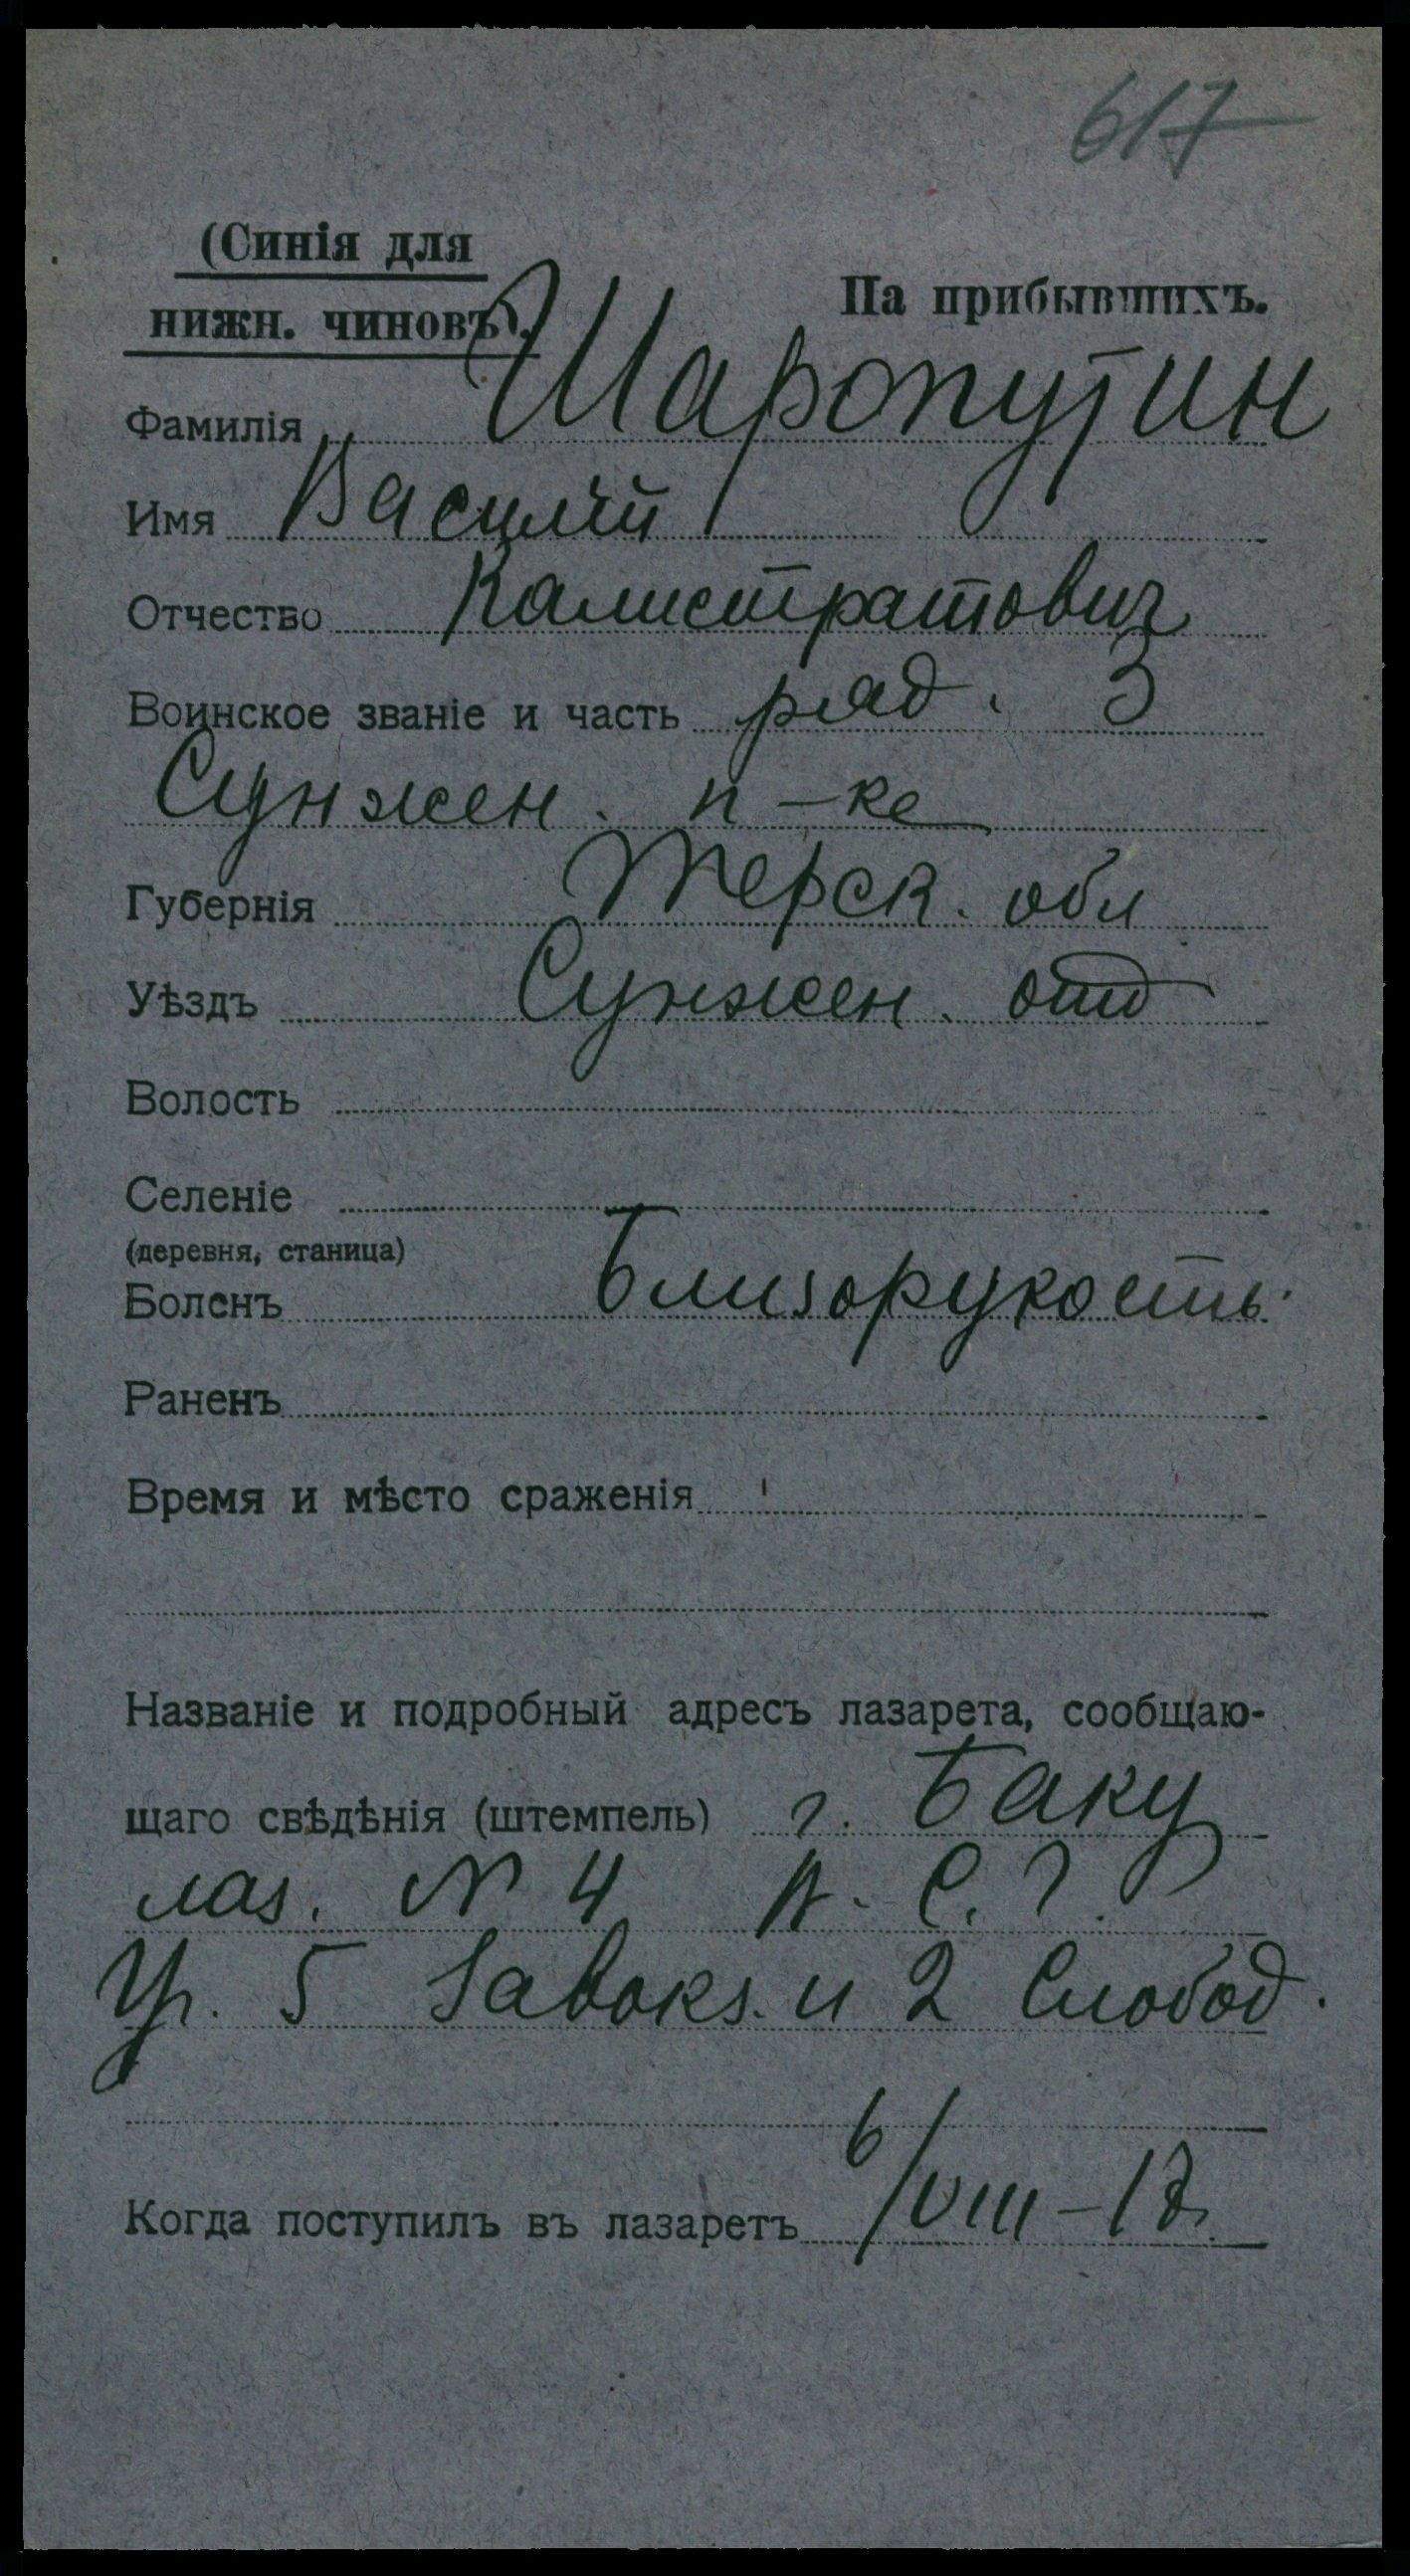 617
(Синія для
нижн. чиновъ).
На прибывшихъ.
Фамилія Шаропутин
Имя Василій
Отчество Калистратович
Воинское званіе и часть ряд. 3
Сунжен. п-ка
Губернія Терск. обл
Уѣздъ Сунжен. отд
Волость
Селеніе
(деревня, станица)
Боленъ Близорукость.
Раненъ
Время и мѣсто сраженія
Названіе и подробный адресъ лазарета, сообщаю-
щаго свѣдѣнія (штемпель) г. Баку
лаз. № 4 С. Г.
Уг. 5 Завокз. и 2 Слобод.
Когда поступилъ въ лазаретъ 6/VIII-17.